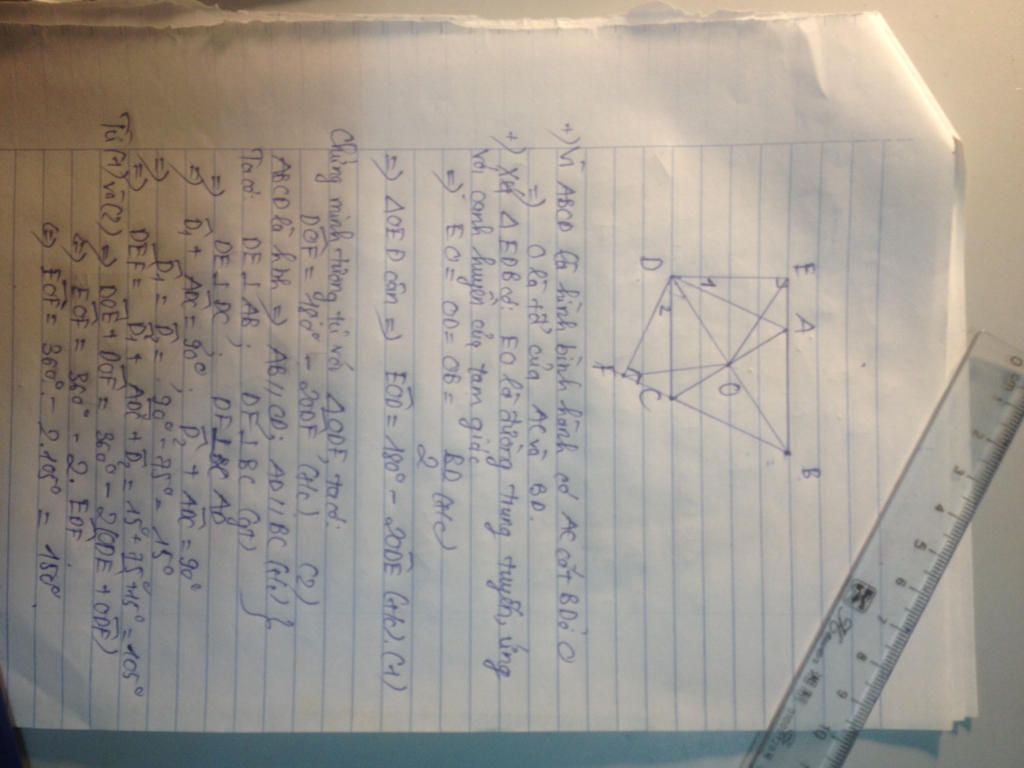 E A B
D 1 2
O
F C
+) Vì ABCD là hình bình hành có AC cắt BD ở O
=) O là tđ của AC và BD.
+) Xét Δ EDB có: EO là đường trung tuyến, ứng
với cạnh huyền của tam giác
=) EO = OD = OB = BD/2 (t/c)
=) Δ OED cân =) EOD = 180° - 2ODE (t/c) (1)
Chứng minh tương tự với Δ ODF, ta có:
DOF = 180° - 2ODF (t/c) (2)
ABCD là hbh =) AB // CD; AD // BC (t/c) }
Ta có: DE ⊥ AB; DF ⊥ BC (gt)
=) DE ⊥ DC; DF ⊥ AD
=) D1 + ADC = 90°; D2 + ADC = 90°
=) D1 = D2 = 90° - 75° = 15°
=) DEF = D1 + ADC + D2 = 15° + 75° + 15° = 105°
Từ (1) và (2) =) DOE + DOF = 360° - 2(ODE + ODF)
=) EOF = 360° - 2. EDF
(=) EOF = 360° - 2.105° = 150°.
0 cm 2 3 4 5 6 7 8 9 10